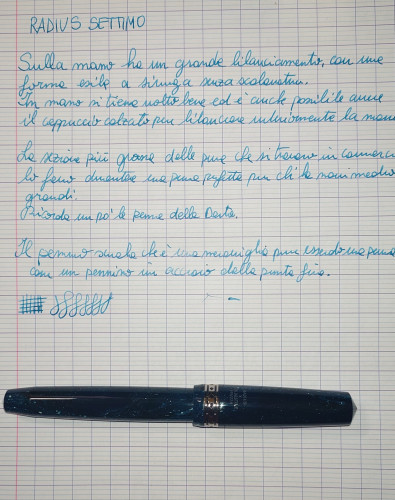 RADIUS SETTIMO
Sulla mano ha un grande bilanciamento, con una
forma esile a siringa senza scalanature.
In mano si tiene molto bene ed è anche possibile avere
il cappuccio calzato per bilanciare ulteriormente la mano
La sezione più grossa delle pene che si trovano in commercio
lo fanno diventare una penna perfetta per chi ha mani medio
grandi.
Ricorda un po' le penne della Delta.
Il pennino scivola che è una meraviglia pur essendo una penna
con un pennino in acciaio dalla punta fine.